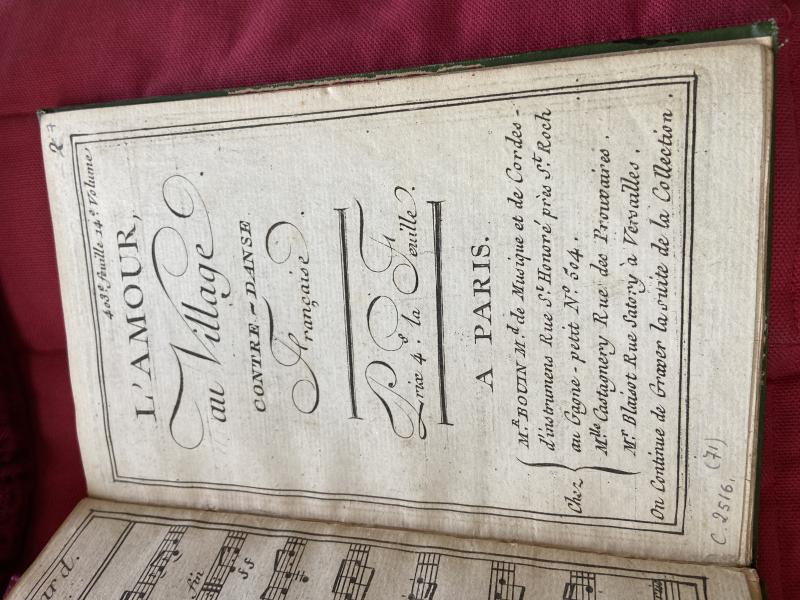 403.e feuille 14.e Volume,
L'AMOUR,
au Village.
CONTRE-DANSE
Française.
Prix 4.s la Feuille.
A PARIS.
Chez
M.R BOUIN M.d de Musique et de Cordes-
d'instrumens Rue S.t Honoré près S.t Roch
au Gagne-petit N.o 504.
M.lle Castagnery Rue des Prouvaires.
M.r Blaisot Rue Satory à Versailles.
On Continue de Graver la suite de la Collection.
C. 2516. (71)
fin
ff